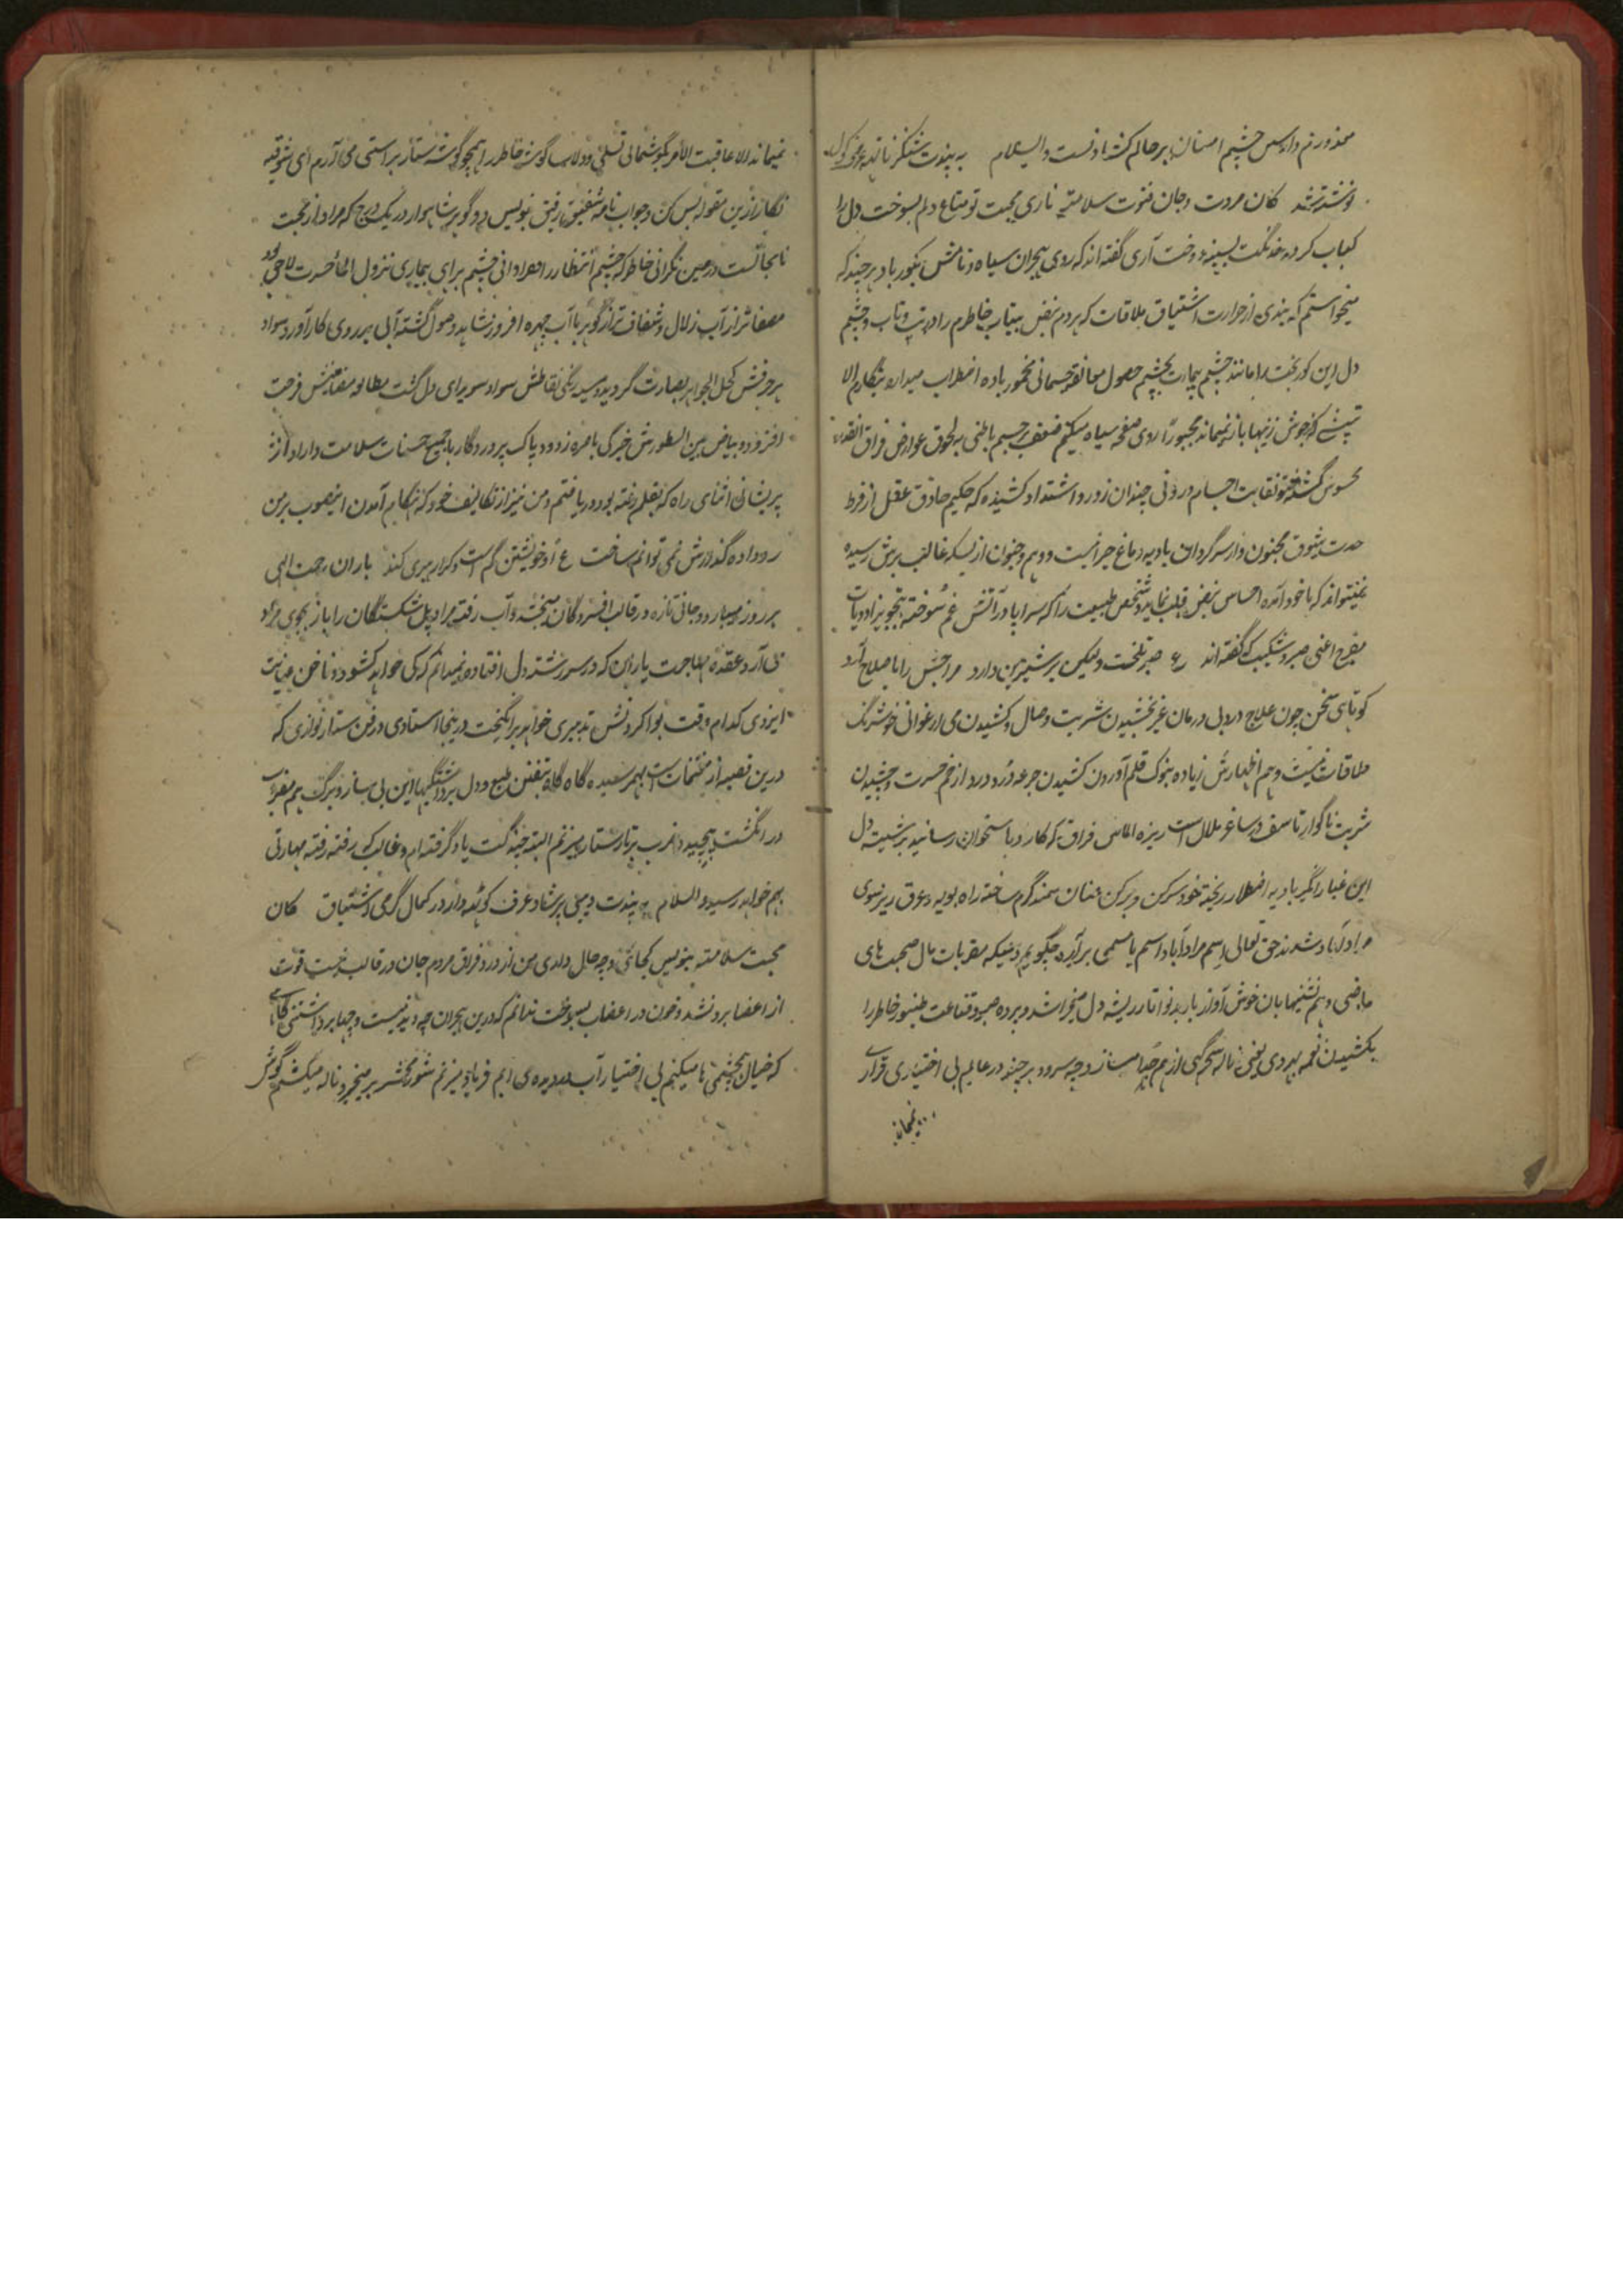 معذورم دار وس چشم احسان بر حالم کشاد نست والسلام به پندت شنکر ناتهه عرف کول
نوشته شد کان مروت و جان فتوت سلامت ناری محبت تو متاع دلم بسوخت دل را
کباب کرد خدنگت بسینه دوخت آری گفته اند که روی هجران سیاه و نامش بگور باد هر چند که
میخواستم که بندی از حرارت اشتیاق ملاقات که هر دم نفس بیتاب خاطرم را در تب و تاب و چشم
دل این کور بخت را مانند چشم بیمارت بچشم حصول معانقه جسمانی مخمور باده اضطراب میدارد بنگارم الا
که جوش زنیها باز نمیماند مجبورا روی صفحه سیاه میکنم ضعف جسم باطنی به لحوق عوارض فراق
محسوس گشته نقابت اجسام درونی چندان زور و اشتداد کشیده که حکیم حاذق عقل از فرط
حدت شوق مجنون وار سرگردان بادیه دماغ حیرانیست و وهم و جنون از بسکه غالب برش رسیده
نمیتواند که با خود آمده احساس نبض قلب نماید و شخص طبیعت را که سراپا در آتش غم سوخته بتجویز ادویات
مفرح اعنی صبر و شکیب که گفته اند ع صبر تلخست ولیکن بر شیرین دارد مزاجش را باصلاح آرد
کوتاهی سخن چون علاج درد بی درمان غیر نخشیدن شربت وصال و کشیدن می ارغوانی خوشرنگ
ملاقات نیست و هم اظهارش زیاده بنوک قلم آوردن کشیدن جرعه درد از خم حسرت و چشیدن
شربت ناگوار تاسف در ساغر ملال است ریزه الماس فراق که کارد باستخوان رسانید بر شیشه دل
این غبار انگیز بادیه اضطرار ریخته خود سرکن و برکن عنان سمند گرم ساخته راه بویه و عرق ریز سوی
مرادآباد شدند حق تعالی اسم مرادآباد اسم با مسمی برآرد چگویم دمیکه مقربات مال صحبت های
ماضی و هم نشینیها بان خوش آواز بار بد نوا تا ریشه دل میخراشد و پرده صبر و قناعت طنبور خاطر را
بکشیدن نغمه بیرودی یعنی ناله سحرگهی از هم جدا میسازد چه سرود هر چند در عالم بی اختیاری قراری
نمیماند
نمیماند الا عاقبت الامر بگوشمالی تسلی و دلاسا گوشه خاطر را همچو گوشه ستار براستی می آرم ای شوقیه
نگار ازین مقوله بس کن و جواب نامه شفیق رفیق بنویس دو گوهر شاهوار در یک درج که مراد از محبت
نامجاتست در عین نگرانی خاطر که چشم انتظار را فراوانی چشم براهی بیماری نزول الماء حسرت لاحق بود
مصفا تر از آب زلال و شفاف تر از گوهر با آب چهره افروز شاهد وصول گشته آبی بر روی کار آورد سواد
هر حرفش کحل الجواهر بصارت گردید و سیه رنگی نقاطش سواد سویدای دل گشت مطالعه مضامینش فرحت
افزود و بیاض بین السطورش خیرگی باصره زدود پاک پروردگار با جمیع حسنات سلامت دارد از
پریشانی اثنای راه که بقلم رفته بود دریافتم و من نیز از تکالیف خود که هنگام آمدن اینصوب بر من
رو داده گذارش نمی توانم ساخت ع او خویشتن گم است کرا رهبری کند باران رحمت الهی
هر روز میبارد و جانی تازه در قالب افسردگان میبخشد و آب رفته مراد پل شکستگان را باز بجوی مراد
می آرد عقده مهاجرت یاران که در سررشته دل افتاده نمیدانم که کی خواهد کشود و ناخن عنایت
ایزدی کدام وقت بوا کردنش تدبیری خواهد برانگیخت درینجا استادی در فن ستار نوازی که
درین قصبه از مغتنمات است بهم رسیده گاه گاه بتفنن طبع و دل برداشتگیها این بی ساز و برگ هم مضراب
در انگشت پیچیده ضرب بر تار ستار میزنم البته چند گت یاد گرفته ام و غالب که رفته رفته مهارتی
بهم خواهد رسید والسلام به پندت دیبی پرشاد عرف کوتهه دار در کمال گرمی اشتیاق کان
محبت سلامت بنویس کجائی و چه حال داری من از درد فراق مردم جان در قالب نیست قوت
از اعضا برد نشد و خون در اعضا بسوخت ندانم که درین هجران چه دید نیست و چها برداشتنی گاهی
که خیال بچشمی ها میکنم بی اختیار آب در دیده می آیم فریاد میزنم شور محشر بر میخیزد ناله میکشم گوش